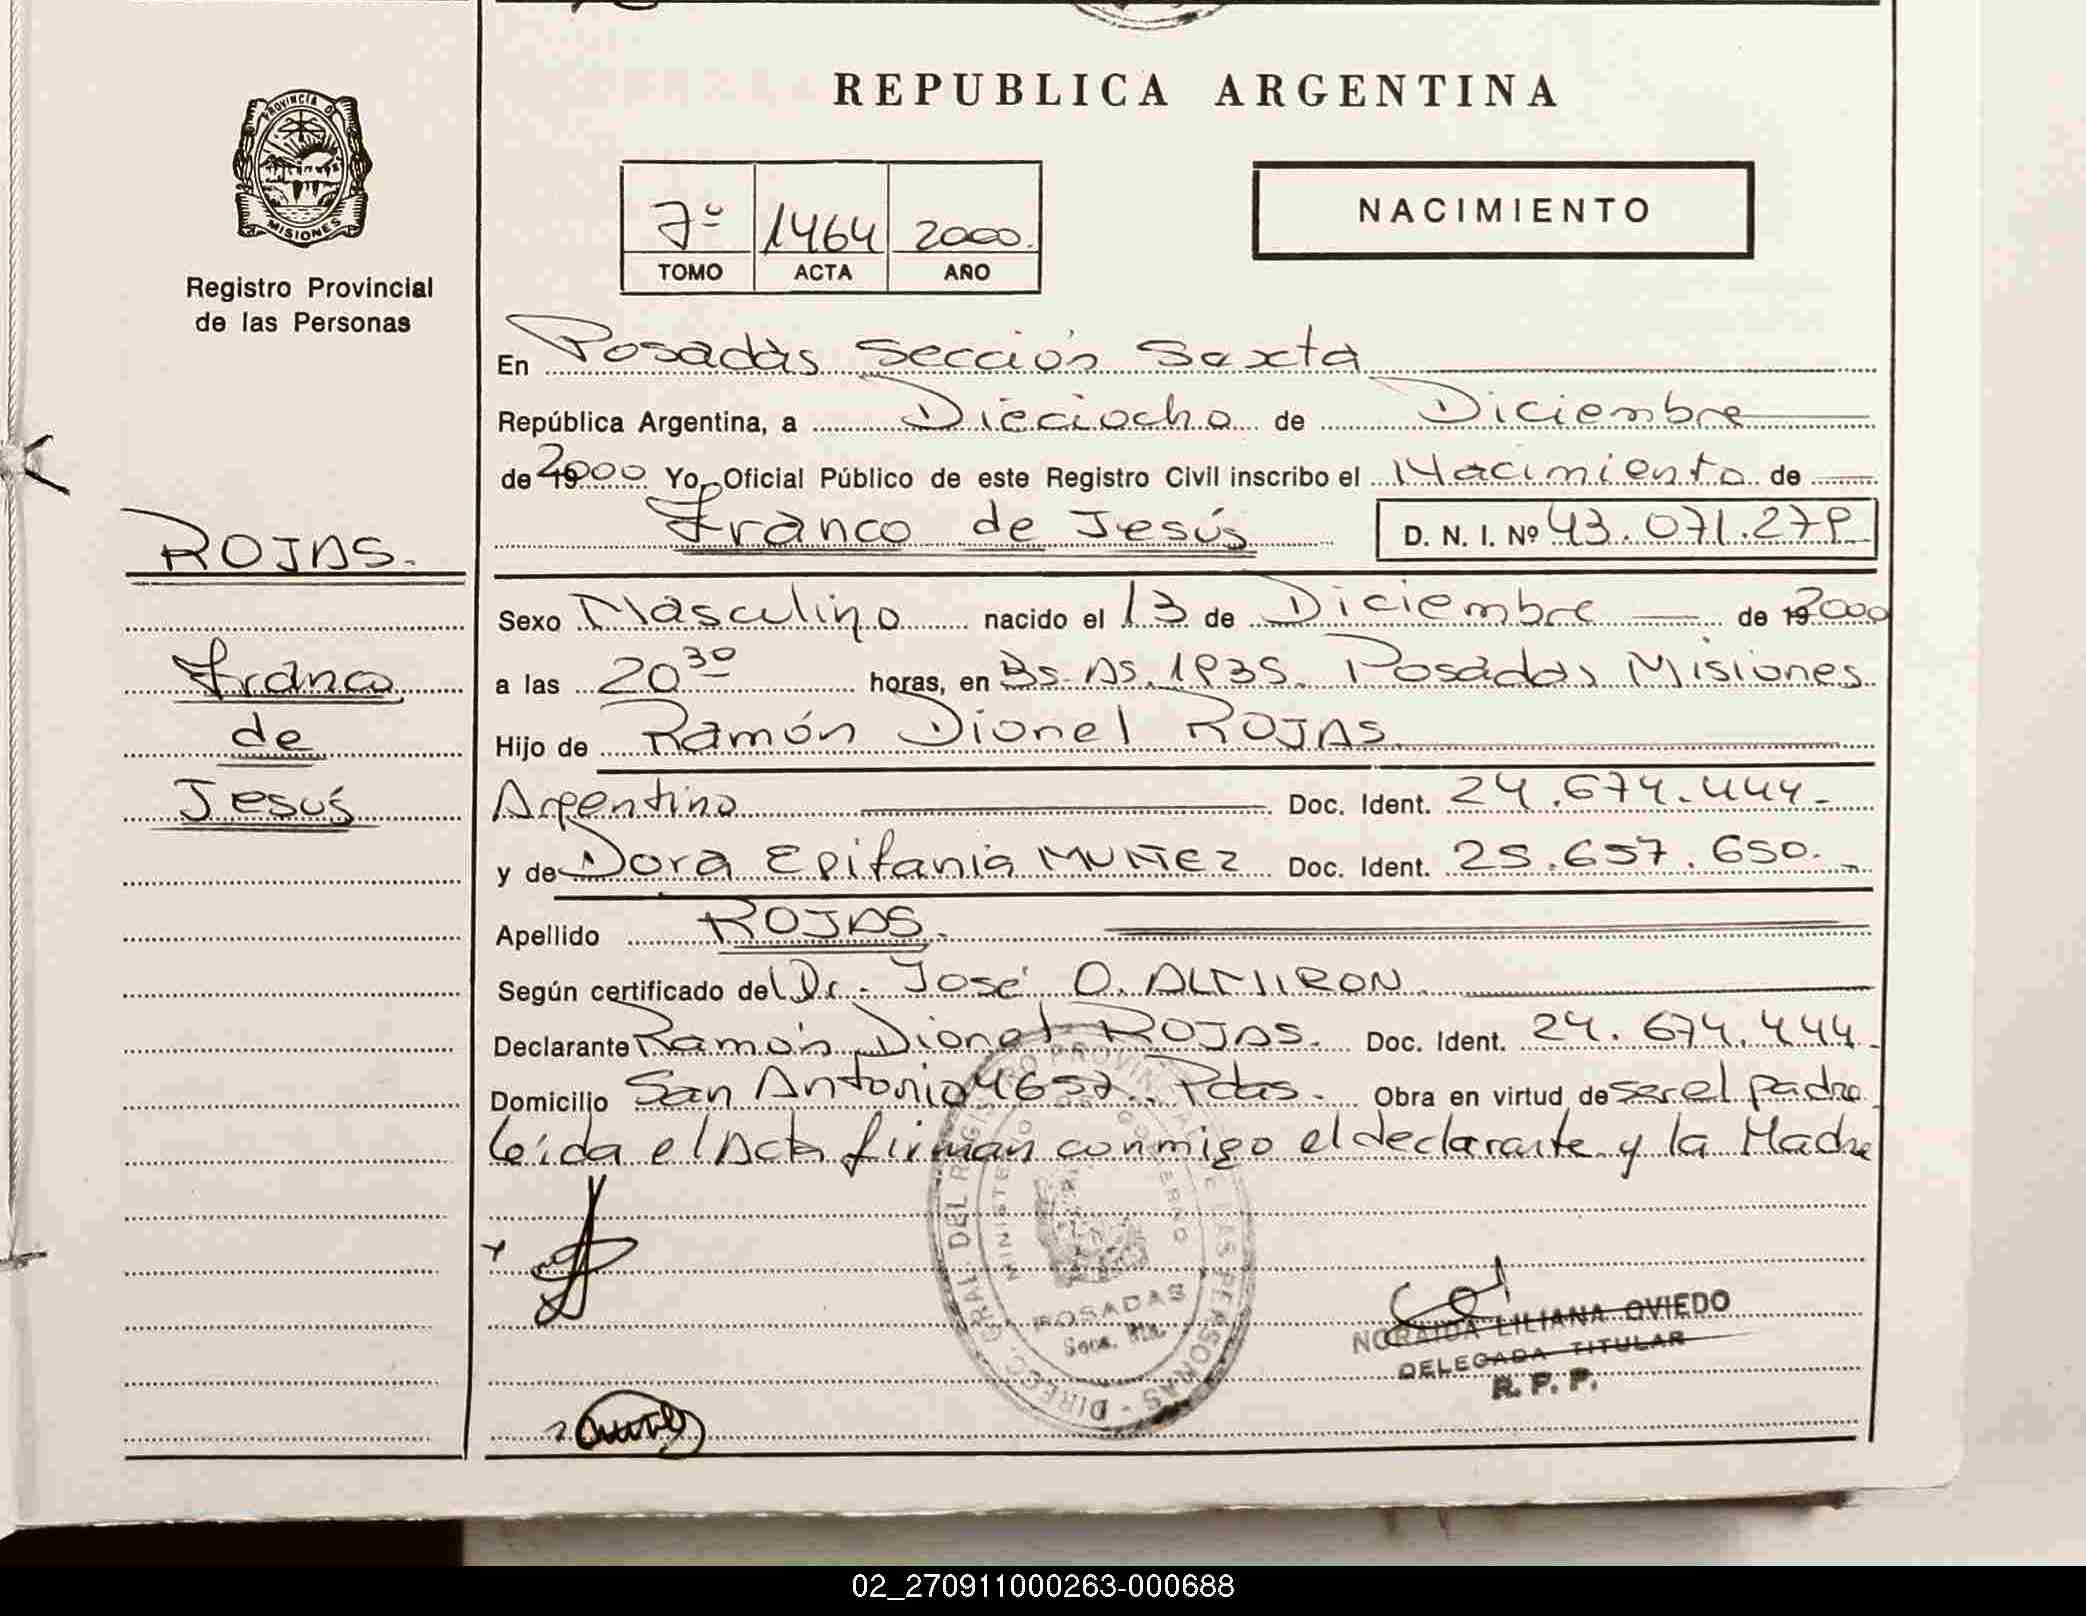 REPUBLICA ARGENTINA
PROVINCIA DE MISIONES
Registro Provincial
de las Personas
7º 1464 2000.
TOMO ACTA AÑO
NACIMIENTO
En Posadas Sección Sexta
República Argentina, a Dieciocho de Diciembre
de 2000 Yo, Oficial Público de este Registro Civil inscribo el Nacimiento de
Franco de Jesús D. N. I. Nº 43.071.279
ROJAS.
Franco
de
Jesús
Sexo Masculino nacido el 13 de Diciembre de 192000
a las 20 30 horas, en Bs. As. 1935. Posadas Misiones
Hijo de Ramón Dionel ROJAS.
Argentino Doc. Ident. 24.674.444.
y de Dora Epifania MUÑEZ Doc. Ident. 25.657.650.
Apellido ROJAS.
Según certificado del Dr. José O. ALMIRON
Declarante Ramón Dionel ROJAS. Doc. Ident. 24.674.444
Domicilio San Antonio 4657. Pdas. Obra en virtud de ser el padre
leída el Acta firman conmigo el declarante y la Madre
DIRECC. GRAL. DEL REGISTRO PROVINCIAL DE LAS PERSONAS
MINISTERIO DE GOBIERNO
POSADAS
NORAIDA LILIANA OVIEDO
DELEGADA TITULAR
R. P. P.
02_270911000263-000688